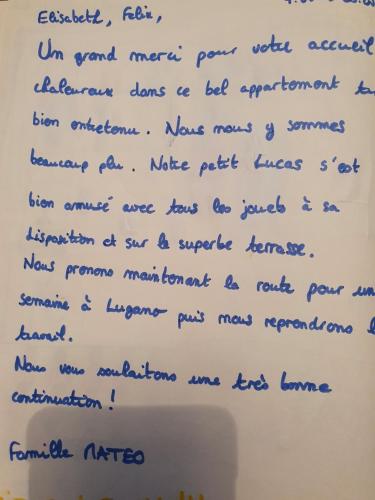 Elisabeth, Felix,
Un grand merci pour votre accueil
chaleureux dans ce bel appartement
bien entretenu. Nous nous y sommes
beaucoup plu. Notre petit Lucas s'est
bien amusé avec tous les jouets à sa
disposition et sur la superbe terrasse.
Nous prenons maintenant la route pour
semaine à Lugano puis nous reprendrons
travail.
Nous vous souhaitons une très bonne
continuation !
Famille MATEO